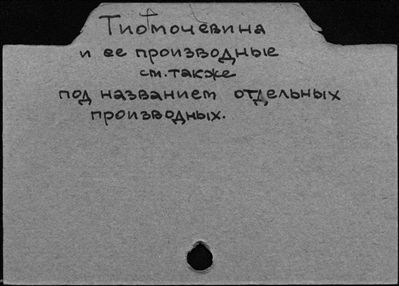 Тиомочевина
и ее производные
см. также
под названием отдельных
производных.